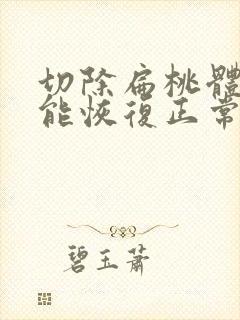 切除扁桃體
能恢復正常
碧玉蕭